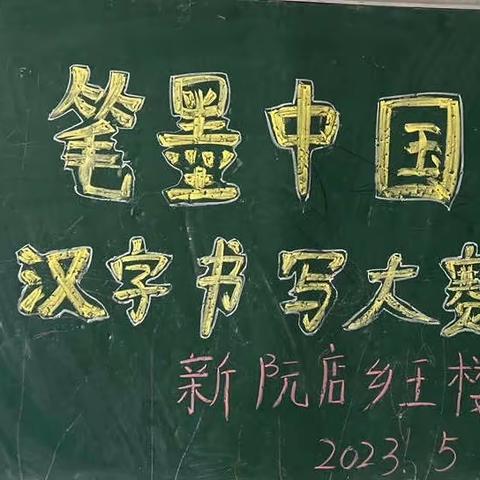 笔墨中国
汉字书写大赛
新阮店乡王楼
2023.5